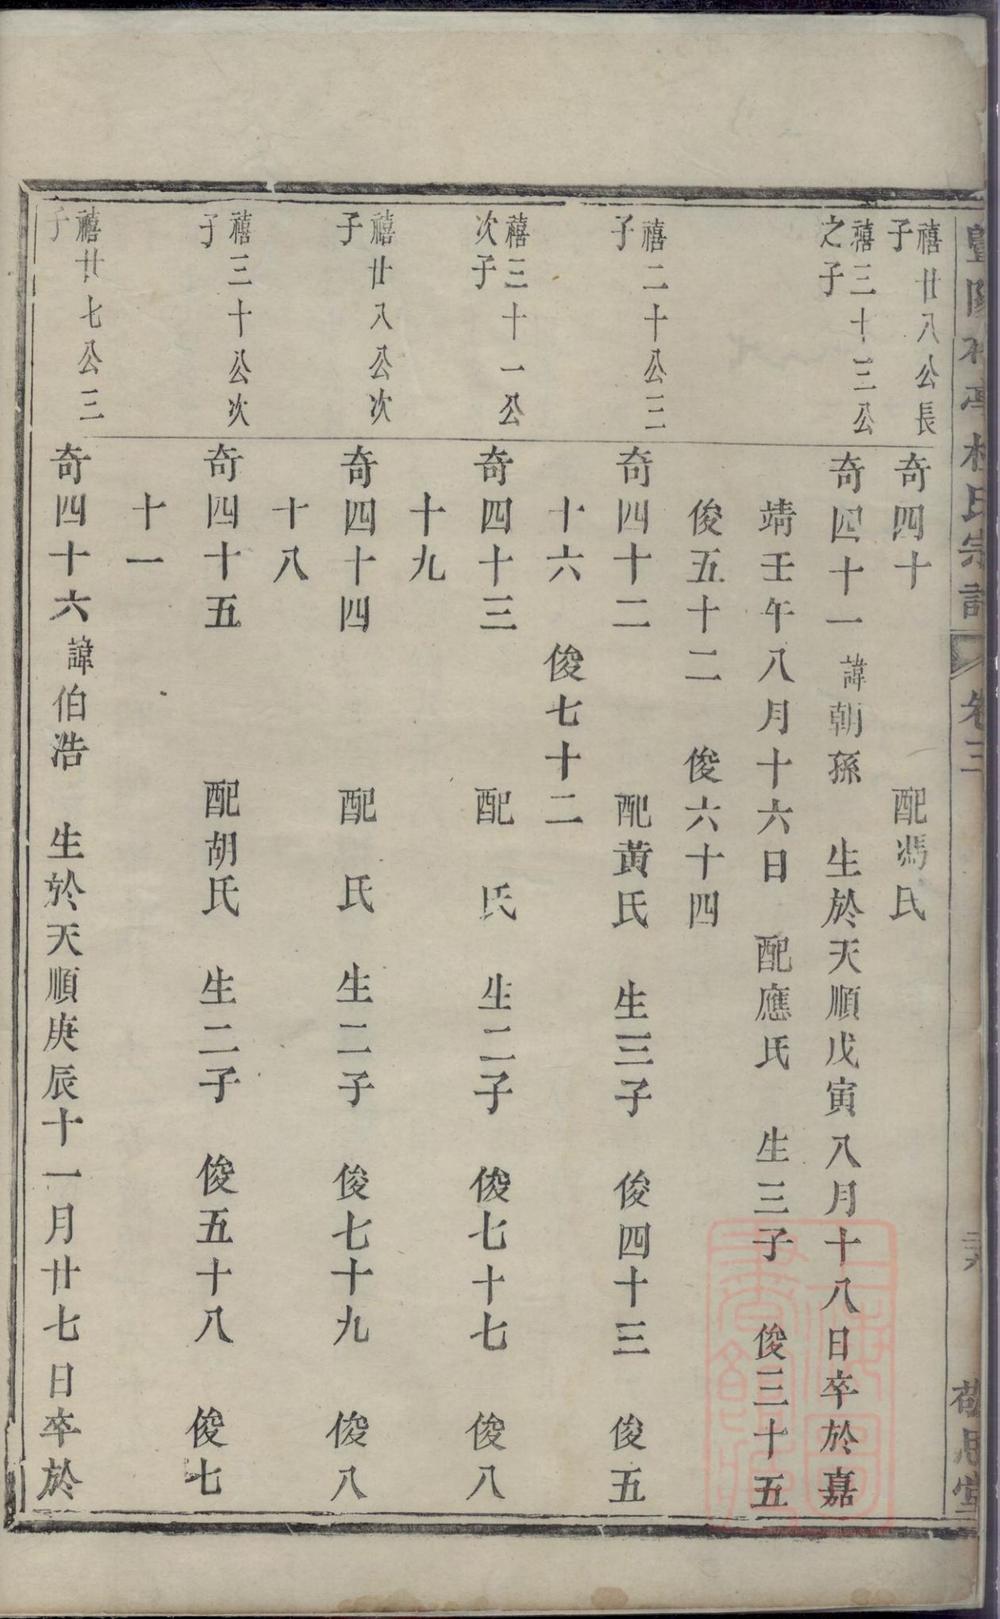 氏宗譜 卷三
禧廿八公長
子
奇四十 配馮氏
禧三十三公
之子
奇四十一 諱朝孫 生於天順戊寅八月十八日卒於嘉
靖壬午八月十六日 配應氏 生三子 俊三十五
俊五十二 俊六十四
禧二十公三
子
奇四十二 配黃氏 生三子 俊四十三 俊五
十六 俊七十二
禧三十一公
次子
奇四十三 配 氏 生二子 俊七十七 俊八
十九
禧廿八公次
子
奇四十四 配 氏 生二子 俊七十九 俊八
十八
禧三十公次
子
奇四十五 配胡氏 生二子 俊五十八 俊七
十一
禧廿七公三
子
奇四十六 諱伯浩 生於天順庚辰十一月廿七日卒於